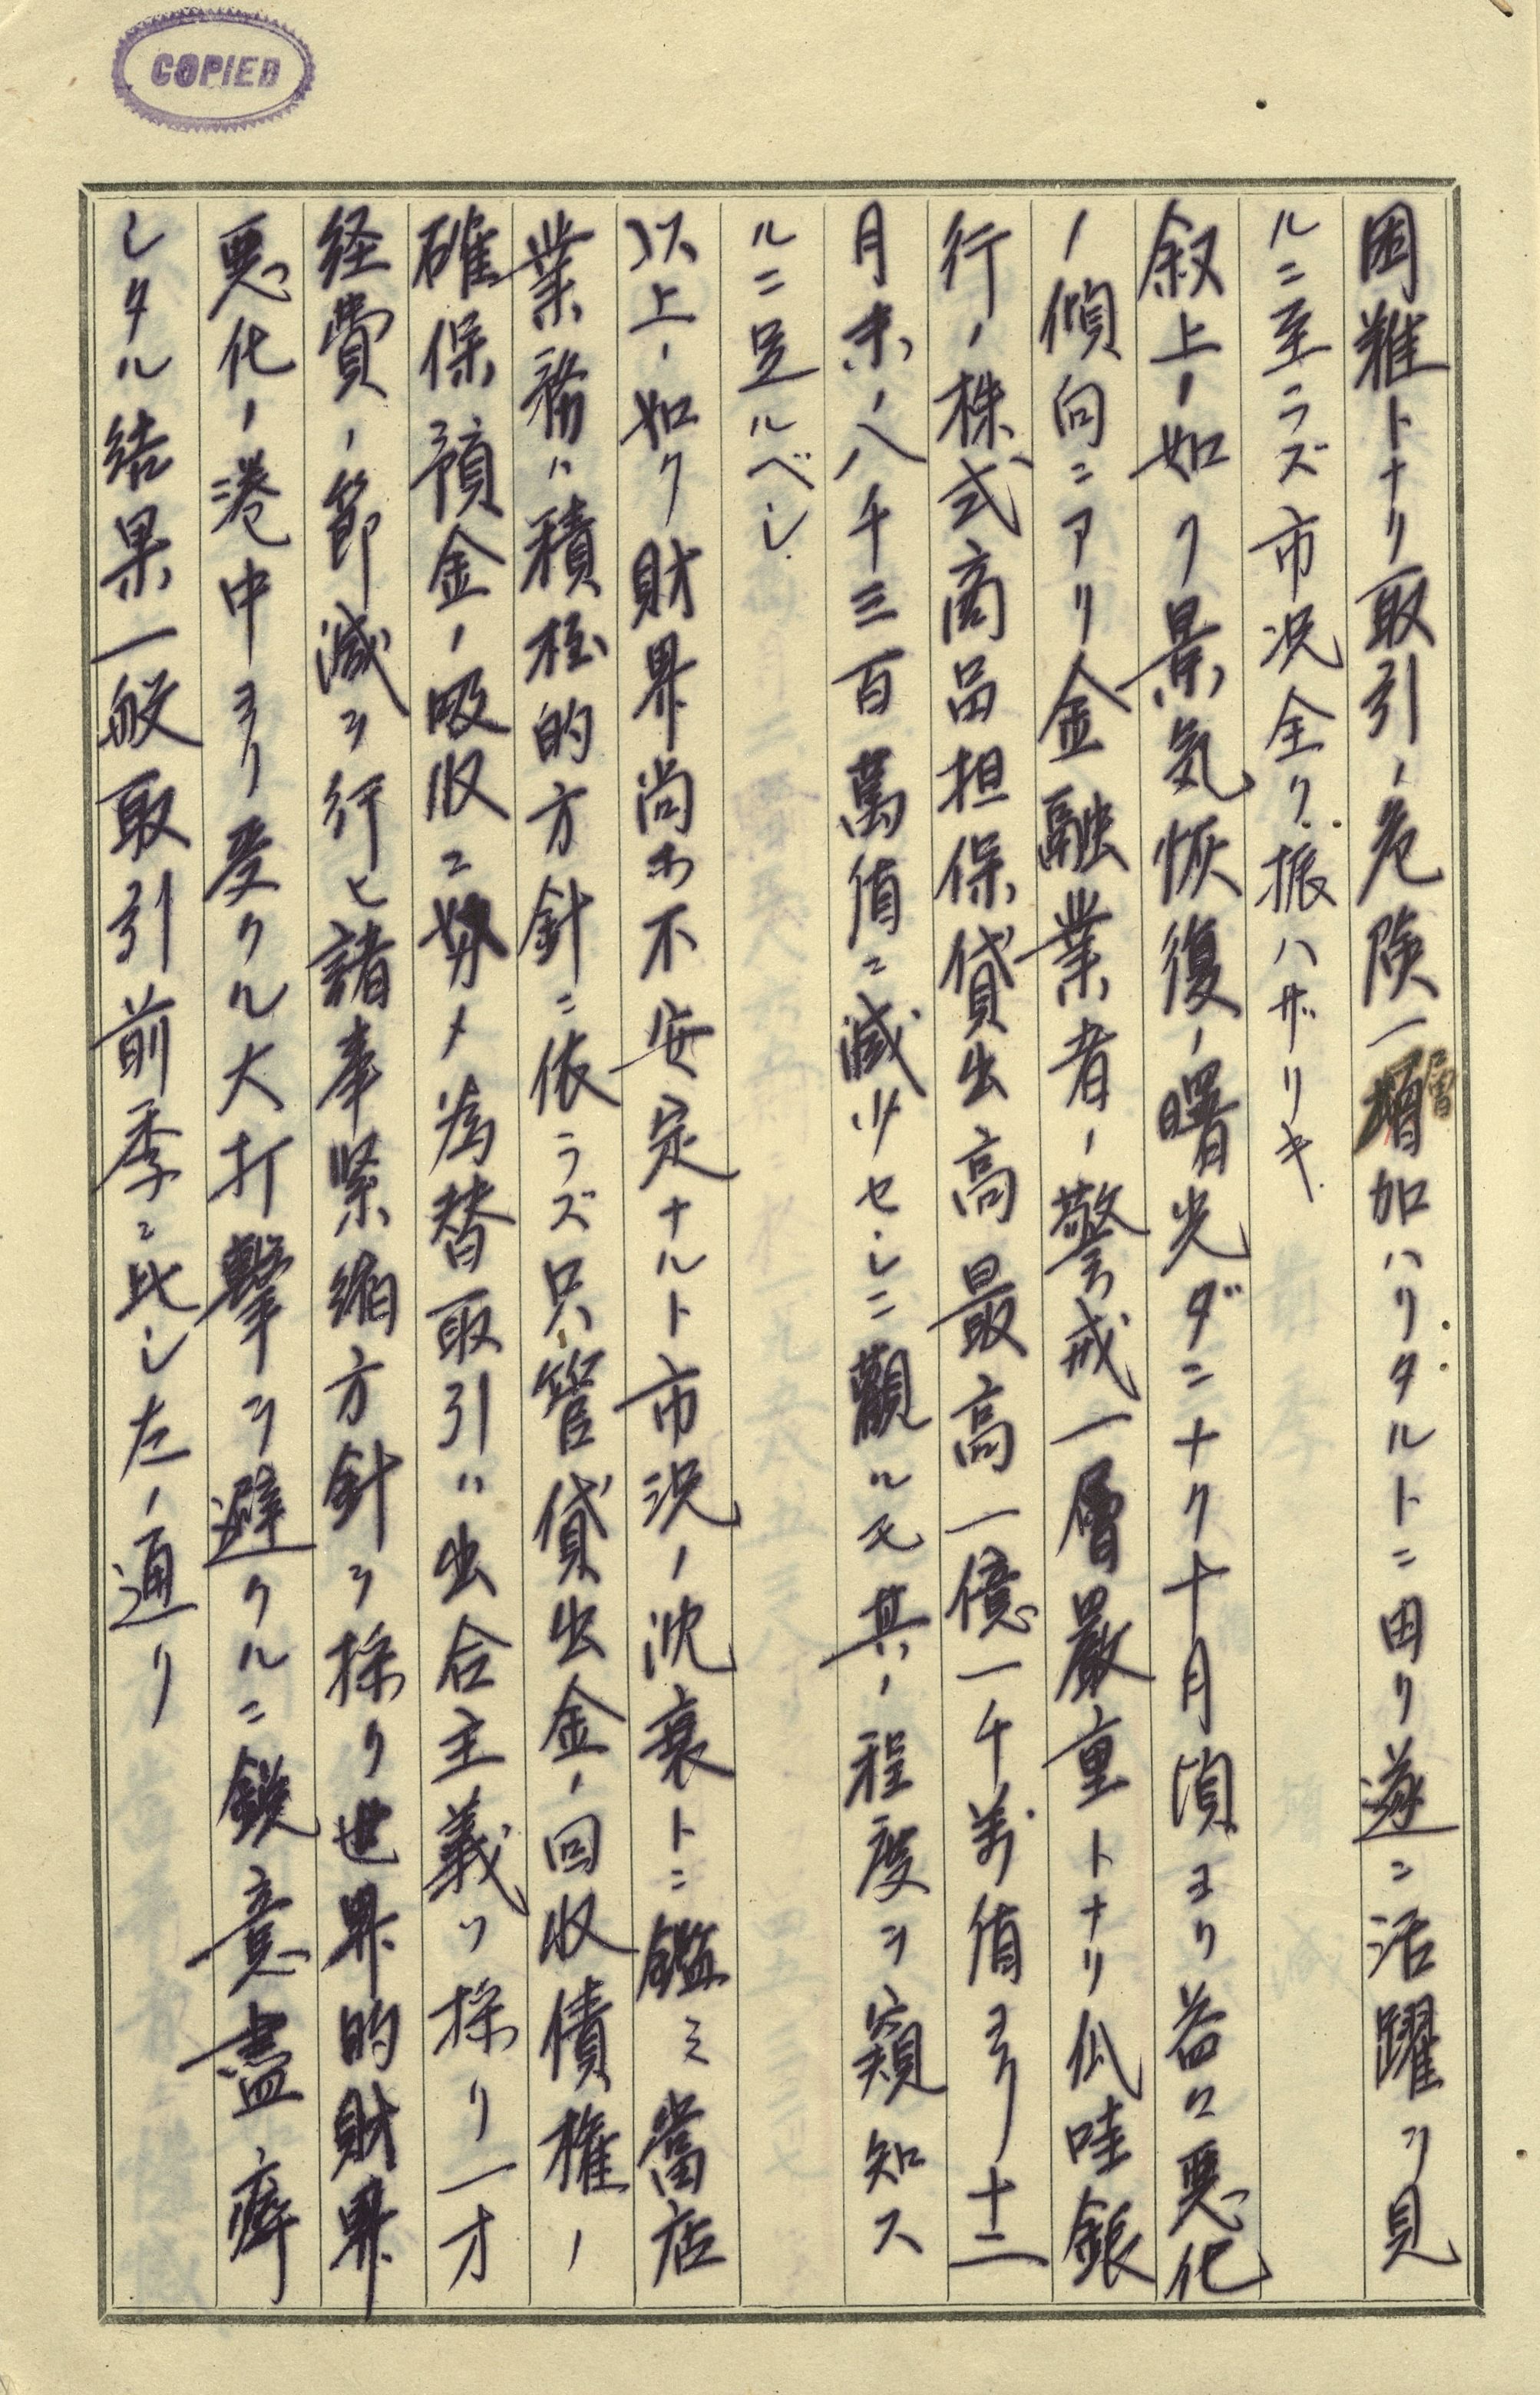 COPIED
困難トナリ取引ノ危険一層加ハリタルトニ由リ遂ニ活躍ヲ見
ルニ至ラズ市況全ク振ハザリキ
叙上ノ如ク景気恢復ノ曙光ダニナク十月頃ヨリ益々悪化
ノ傾向ニアリ金融業者ノ警戒一層厳重トナリ爪哇銀
行ノ株式商品担保貸出高最高一億一千万盾ヨリ十二
月末ノ八千三百萬盾ニ減少セシニ觀ルモ其ノ程度ヲ窺知ス
ルニ足ルベシ
以上ノ如ク財界尚ホ不安定ナルト市況ノ沈衰トニ鑑ミ當店
業務ハ積極的方針ニ依ラズ只管貸出金ノ回収債権ノ
確保預金ノ吸収ニ努メ為替取引ハ出合主義ヲ採リ一方
経費ノ節減ヲ行ヒ諸事緊縮方針ヲ採リ世界的財界
悪化ノ港中ヨリ受クル大打撃ヲ避クルニ鋭意盡瘁
シタル結果一般取引前季ニ比シ左ノ通リ